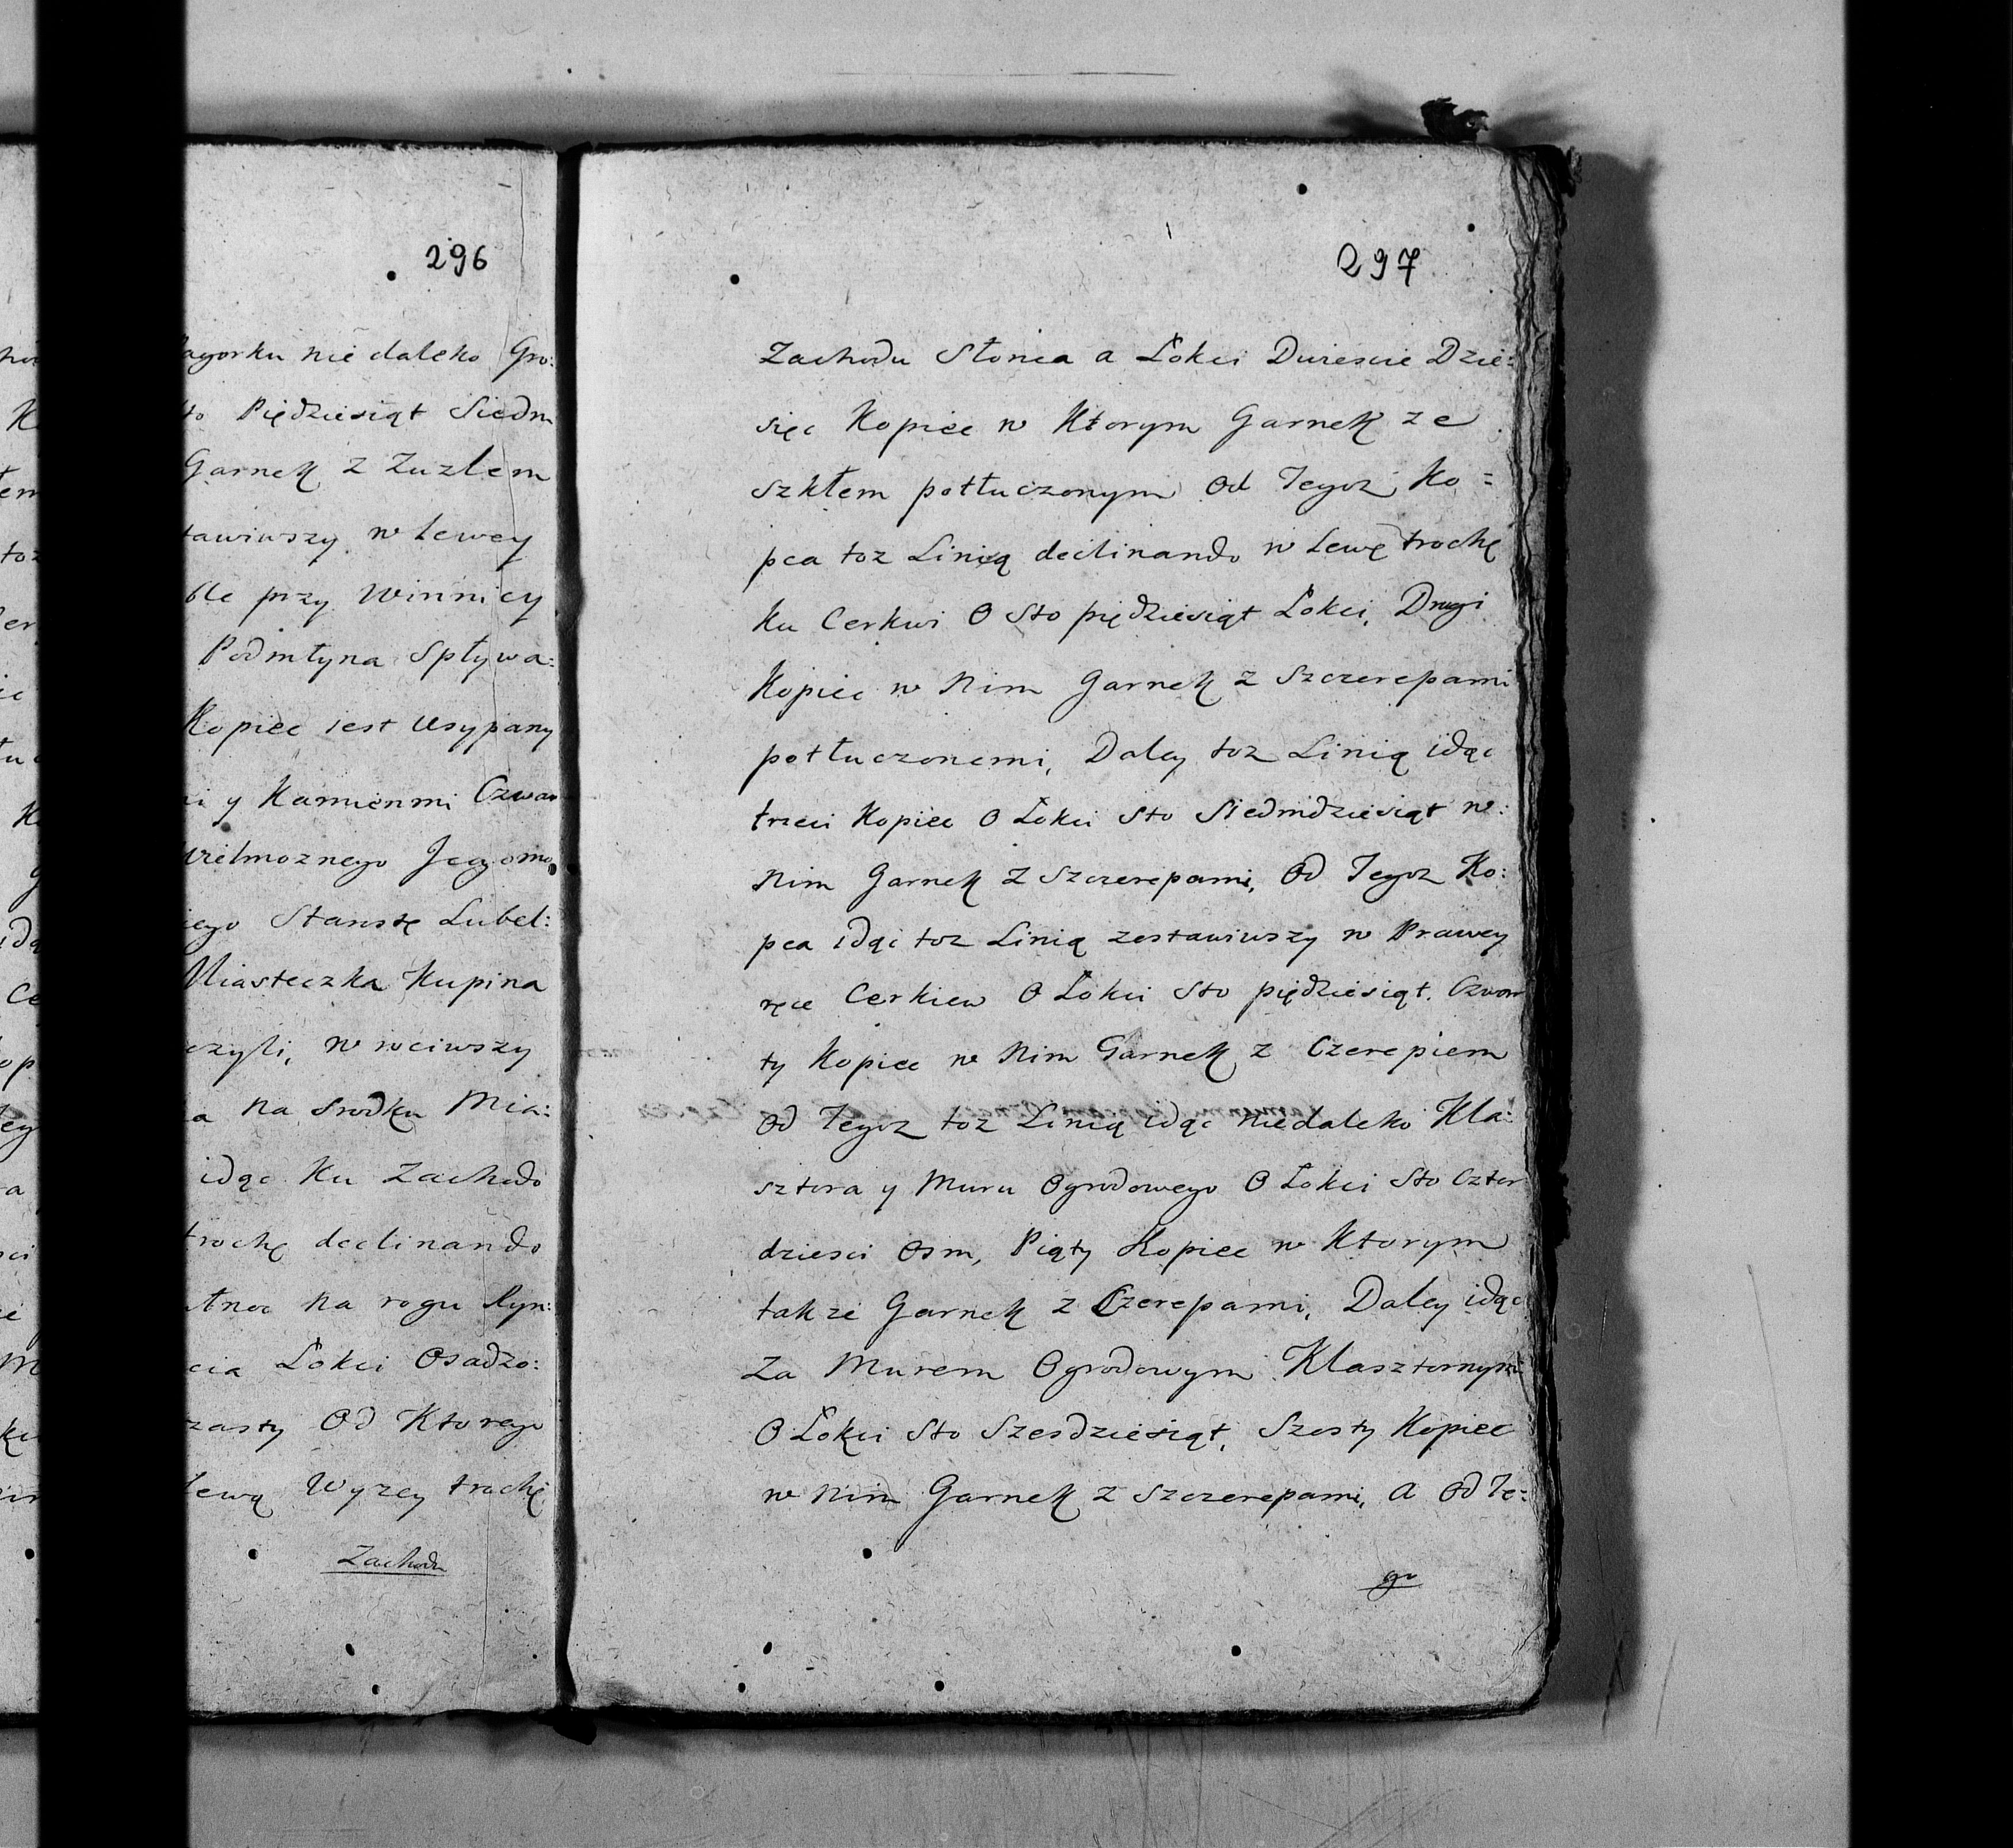 296
agorku nie daleko Gro:
to Piędziesiąt Siedm
Garnek z Zuzlem
tawiwszy w Lewey
ble przy Winnicy
Podmłyna Spływa:
Kopiec iest Usypany
i y Kamienmi Czwar
wielmoznego Jegomo
iego Starostę Lubel:
Miasteczka Kupina
czyli, w rociwszy
a na srodku Mia:
idąc Ku Zachodo
trochę declinando
na rogu Ryn:
cia Lokci Osadzo:
zasty Od Ktorego
lewą Wyzey trochę
Zachodu
297
Zachodu Słonca a Łokci Dwiescie Dzie:
sięc Kopiec w Ktorym Garnek ze
szkłem potłuczonym od Tegoz Ko=
pca toz Linią declinando w Lewę trochę
Ku Cerkwi O Sto piędziesiąt Łokci, Drugi
Kopiec w Nim Garnek z Szczerepami
potłuczonemi, Daley toz Linią idąc
trzeci Kopiec O Łokci Sto Siedmdziesiąt w:
Nim Garnek z Szczerepami, Od Tegoz Ko:
pca idąc toz Linią zostawiwszy w Prawey
ręce Cerkiew O Łokci Sto piędziesiąt. Czwar
ty Kopiec w Nim Garnek z Czerepiem
Od Tegoz toz Linią idąc niedaleko Kla:
sztora y Muru Ogrodowego O Łokci Sto Czter
dziesci Osm, Piąty Kopiec w Ktorym
takze Garnek z Czerepami, Daley idąc
Za Murem Ogrodowym Klasztornym
O Łokci Sto Szesdziesiąt, Szosty Kopiec
w Nim Garnek z Szczerepami, a Od Te:
go